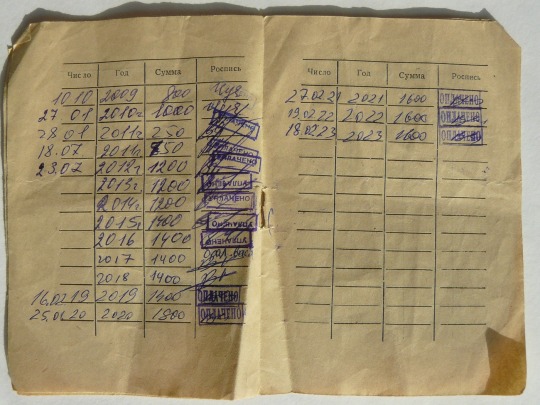 Число Год Сумма Роспись
10.10 2009 800
27 01 2010г 1000
28.01 2011г 250 ОПЛАЧЕНО
18.07 2011г 750 ОПЛАЧЕНО
23.07 2012г 1200 ОПЛАЧЕНО
2013г 1200 ОПЛАЧЕНО
2014г 1200 ОПЛАЧЕНО
2015г 1400 ОПЛАЧЕНО
2016 1400 ОПЛАЧЕНО
2017 1400
2018 1400
16.02.19 2019 1400 ОПЛАЧЕНО
25.01.20 2020 ОПЛАЧЕНО
Число Год Сумма Роспись
27.02.21 2021 1600 ОПЛАЧЕНО
19.02.22 2022 1600 ОПЛАЧЕНО
18.02.23 2023 1600 ОПЛАЧЕНО